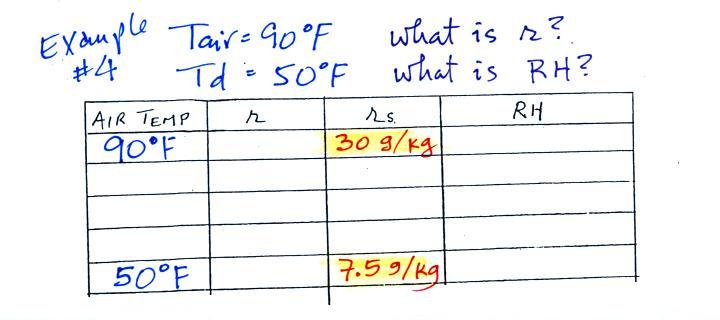 Example Tair = 90°F what is r?
#4 Td = 50°F what is RH?
AIR TEMP r rs. RH
90°F 30 g/kg
50°F 7.5 g/kg